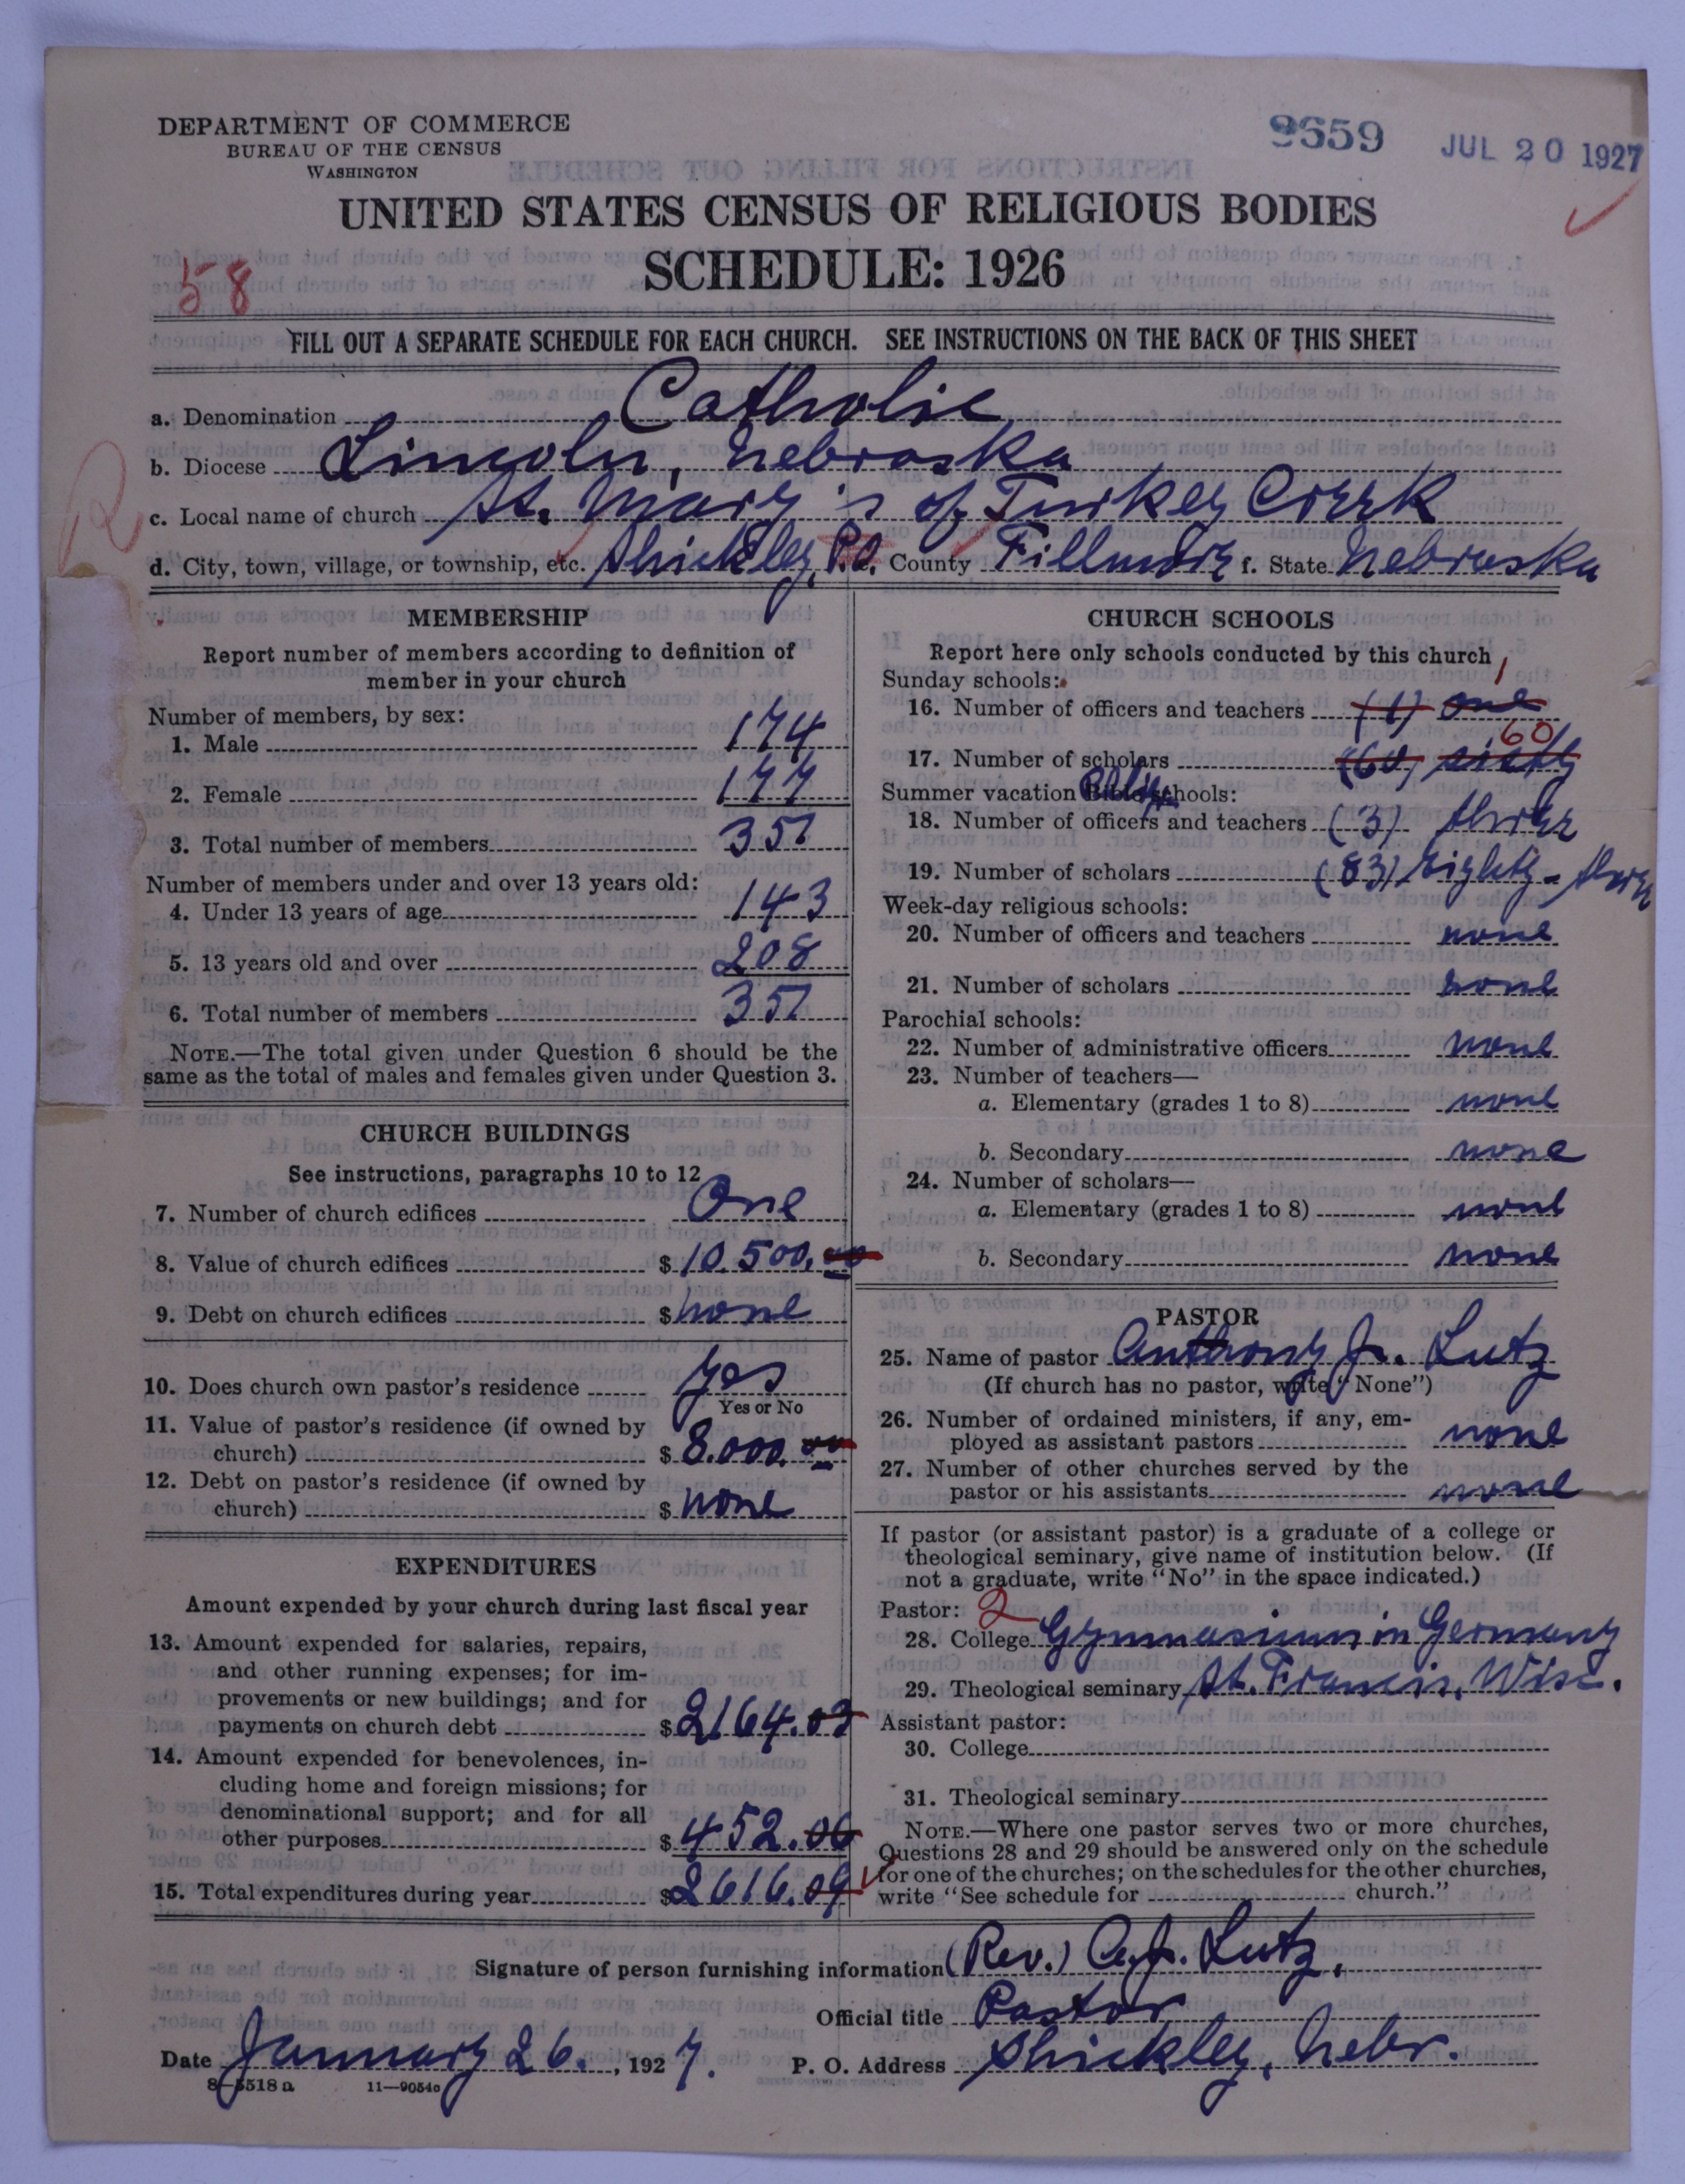 DEPARTMENT OF COMMERCE
BUREAU OF THE CENSUS
WASHINGTON
9659 JUL 20 1927
UNITED STATES CENSUS OF RELIGIOUS BODIES
SCHEDULE: 1926
58
FILL OUT A SEPARATE SCHEDULE FOR EACH CHURCH. SEE INSTRUCTIONS ON THE BACK OF THIS SHEET
a. Denomination Catholic
b. Diocese Lincoln, Nebraska
c. Local name of church St. Mary's of Turkey Creek
d. City, town, village, or township, etc. Shickley, P.O. County Fillmore f. State Nebraska
MEMBERSHIP
Report number of members according to definition of
member in your church
Number of members, by sex:
1. Male 174
2. Female 177
3. Total number of members 351
Number of members under and over 13 years old:
4. Under 13 years of age 143
5. 13 years old and over 208
6. Total number of members 351
NOTE.—The total given under Question 6 should be the
same as the total of males and females given under Question 3.
CHURCH BUILDINGS
See instructions, paragraphs 10 to 12
7. Number of church edifices One
8. Value of church edifices $10.500.00
9. Debt on church edifices $none
10. Does church own pastor's residence yes
Yes or No
11. Value of pastor's residence (if owned by
church) $8.000.00
12. Debt on pastor's residence (if owned by
church) $none
EXPENDITURES
Amount expended by your church during last fiscal year
13. Amount expended for salaries, repairs,
and other running expenses; for im-
provements or new buildings; and for
payments on church debt $2164.03
14. Amount expended for benevolences, in-
cluding home and foreign missions; for
denominational support; and for all
other purposes $452.06
15. Total expenditures during year $2616.09
CHURCH SCHOOLS
Report here only schools conducted by this church
Sunday schools: 1
16. Number of officers and teachers (1) one
60
17. Number of scholars (60) sixty
Summer vacation Bible schools:
18. Number of officers and teachers (3) three
19. Number of scholars (83) Eighty-three
Week-day religious schools:
20. Number of officers and teachers none
21. Number of scholars none
Parochial schools:
22. Number of administrative officers none
23. Number of teachers—
a. Elementary (grades 1 to 8) none
b. Secondary none
24. Number of scholars—
a. Elementary (grades 1 to 8) none
b. Secondary none
PASTOR
25. Name of pastor Anthony J. Lutz
(If church has no pastor, write "None")
26. Number of ordained ministers, if any, em-
ployed as assistant pastors none
27. Number of other churches served by the
pastor or his assistants none
If pastor (or assistant pastor) is a graduate of a college or
theological seminary, give name of institution below. (If
not a graduate, write "No" in the space indicated.)
Pastor: 2
28. College Gymnasium in Germany
29. Theological seminary St. Francis, Wisc.
Assistant pastor:
30. College
31. Theological seminary
NOTE.—Where one pastor serves two or more churches,
Questions 28 and 29 should be answered only on the schedule
for one of the churches; on the schedules for the other churches,
write "See schedule for church."
Signature of person furnishing information (Rev.) A. J. Lutz,
Official title Pastor
Date January 26., 1927. P. O. Address Shickley, Nebr.
8-5518a 11-9054c